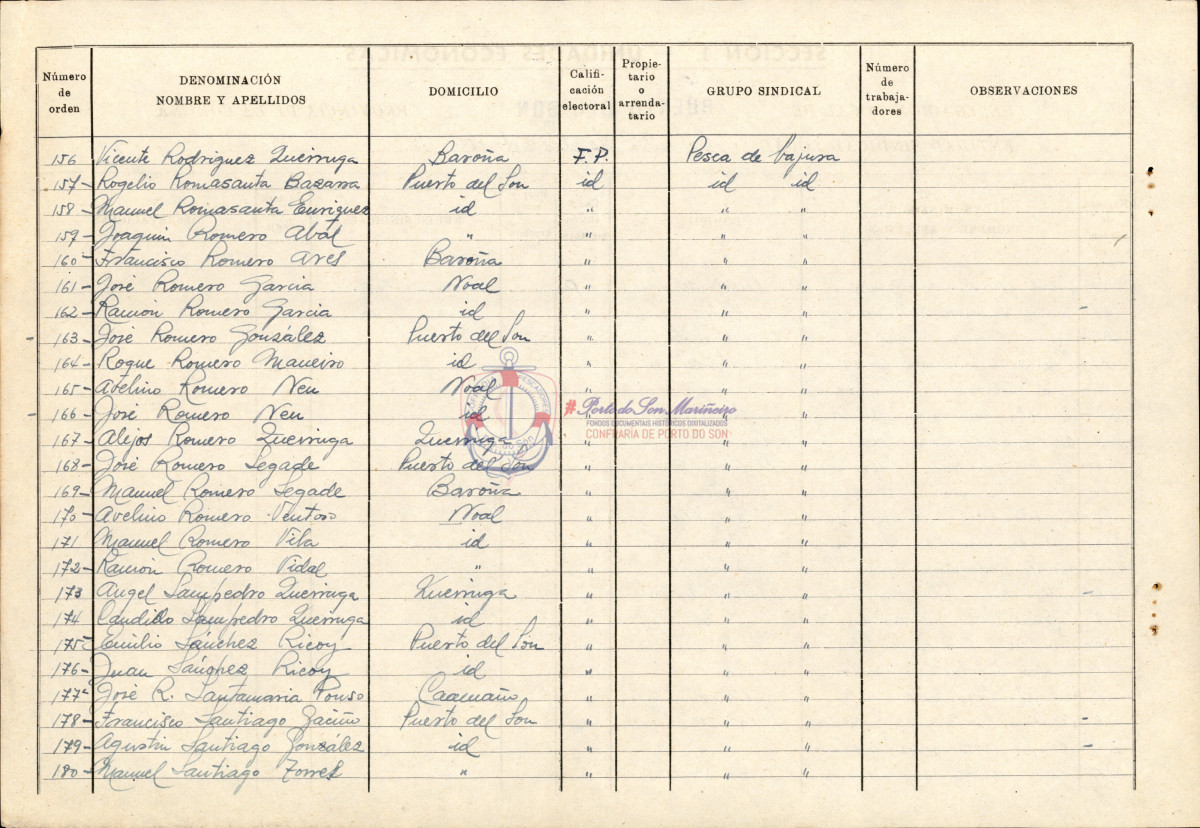 Número de orden | DENOMINACIÓN NOMBRE Y APELLIDOS | DOMICILIO | Califi-cación electoral | Propie-tario o arrenda-tario | GRUPO SINDICAL | Número de trabaja-dores | OBSERVACIONES
156 Vicente Rodriguez Queirruga Baroña F.P. Pesca de bajura
157- Rogelio Romasanta Bazarra Puerto del Son id id id
158- Manuel Romasanta Enriquez id " " "
159- Joaquin Romero Abal " " " "
160- Francisco Romero Ares Baroña " " "
161- José Romero Garcia Noal " " "
162- Ramón Romero Garcia id " " "
- 163- José Romero González Puerto del Son " " "
164- Roque Romero Maneiro id " " "
165- Avelino Romero Neu Noal " " "
- 166- José Romero Neu id " " "
167- Alejos Romero Queirruga Queirruga " " "
168- José Romero Segade Puerto del Son " " "
169- Manuel Romero Segade Baroña " " "
170- Avelino Romero Ventoso Noal " " "
171 Manuel Romero Vila id " " "
172- Ramón Romero Vidal " " " "
173 Angel Sampedro Queirruga Kueirruga " " "
174 Candido Sampedro Queirruga id " " "
175- Emilio Sánchez Ricoy Puerto del Son " " "
176- Juan Sánchez Ricoy id " " "
177- José R. Santamaria Pouso Caamaño " " "
178- Francisco Santiago Puerto del Son " " "
179- Agustin Santiago González id " " "
180- Manuel Santiago Torres " " " "
#Porto do Son Mariñeiro
FONDOS DOCUMENTAIS HISTÓRICOS DIXITALIZADOS
CONFRARÍA DE PORTO DO SON